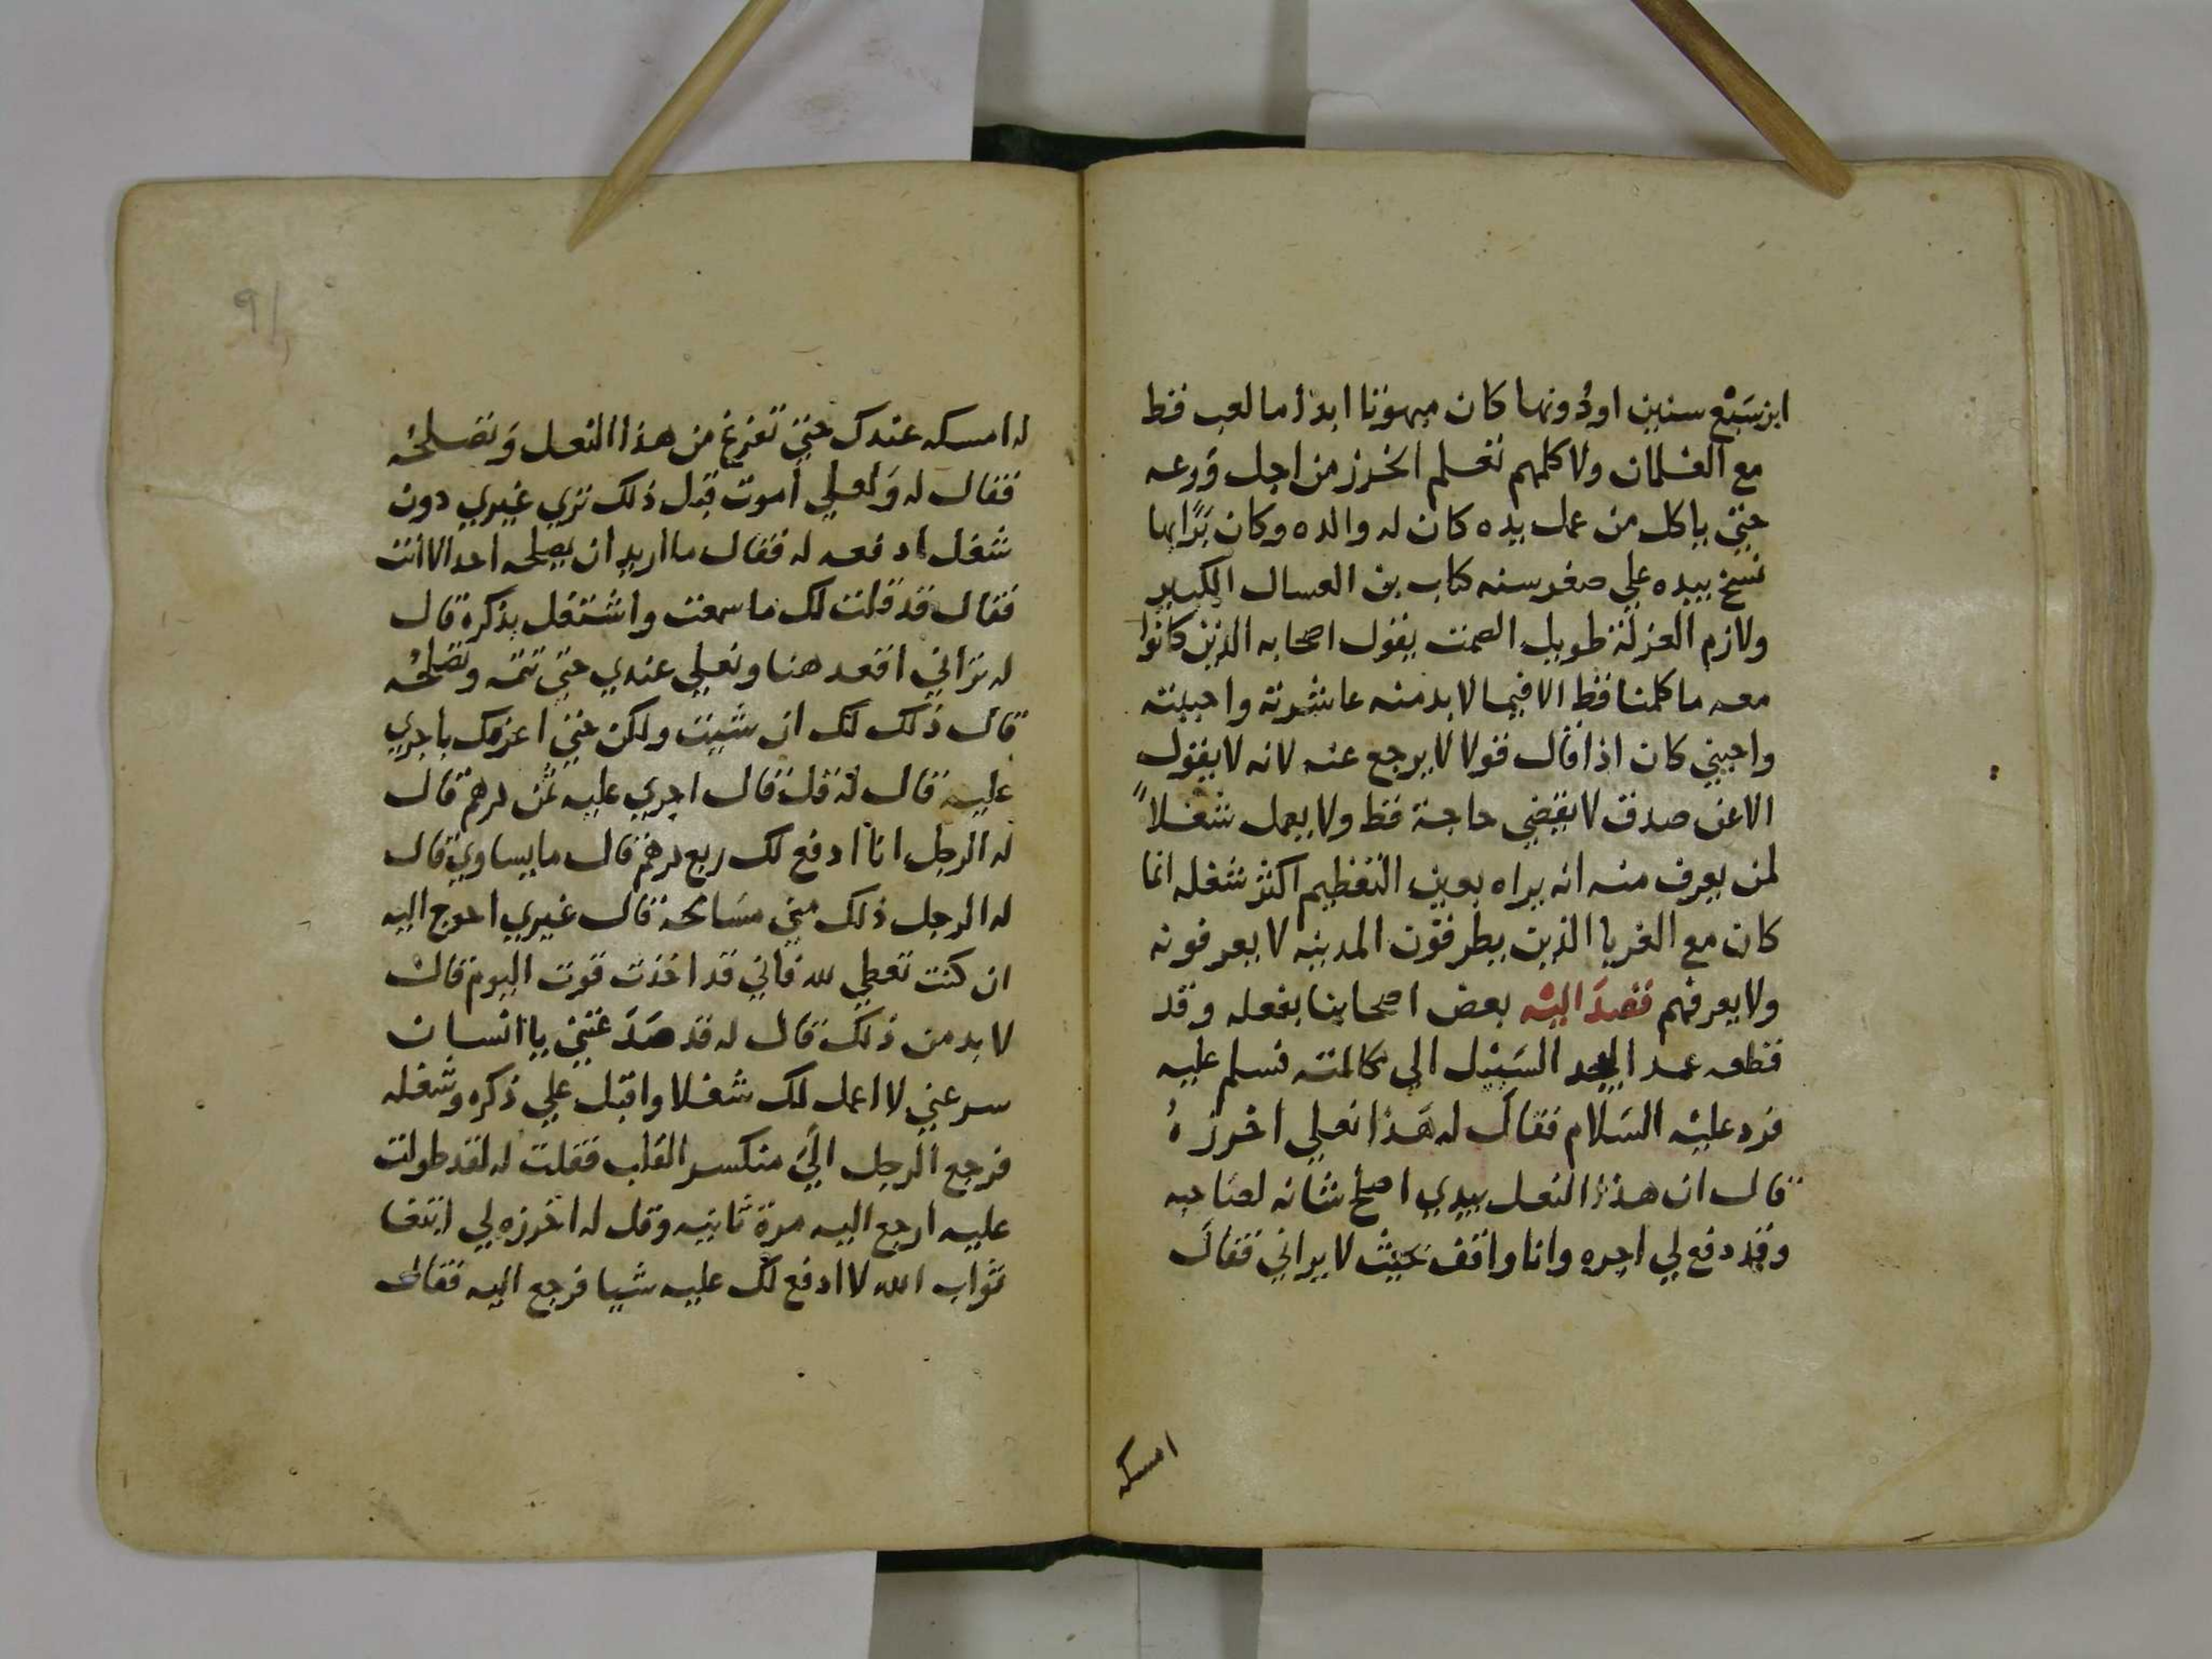 ابن سَبْع سنين اودُونها كان مبهوتا ابداً ما لعب قط
مع الغلمان ولا كلمهم تعلم الخرز من اجل وَرعه
حتي ياكل من عمل يده كان له والده وكان بَرًا بها
نسخ بيده علي صغر سنه كتاب بن العسال الكبير
ولازم العزلة طويل الصمت يقول اصحابه الذين كانوا
معه ما كلمنا قط الا فيما لا بد منه عاشرته واحببته
واحبني كان اذا قال قولا لا يرجع عنه لانه لا يقول
الا عن صدق لا يقضي حاجة قط ولا يعمل شغلاً
لمن يعرف منه انه يراه بعين التعظيم اكثر شغله انما
كان مع الغربا الذين يطرقون المدينه لا يعرفونه
ولا يعرفهم فقصدَ اليْه بعض اصحابنا بفعله وقد
قطع السَبيل الي مكالمته فسلم عليه
فرد عليْه السَلام فقاَل له هَذا نعلي اخرزهُ
قال ان هذا النعل بيدي اصلح شانه لصَاحبه
وقد دفع لي اجره وانا واقف بحيث لا يراني فقاَل
امسكه
91
له امسكه عندك حتي تفرغ من هذا النعل وَتصَلحُه
فقال له وَلعلي أموت قبل ذلك تري غيري دون
شغل ادفعه له فقال ما اريد ان يصلحه احد الا انت
فقال قد قلت لك ما سمعت واشتغل بذكره قال
له تراني اقعد هنا ونعلي عندي حتي تتمه وتصَلحُه
قال ذلك لك ان شيت ولكن حتي اعرفك باجري
عليه قال له قل قال اجري عليه ثمن درهم قال
له الرجل انا ادفع لك ربع درهم قال ما يساوي قال
له الرجل ذلك مني مسَامحه قال غيري احوج اليه
ان كنت تعطي لله فاني قد اخذت قوت اليوم قال
لا بد من ذلك قال له قد صَدَعتني يا انسان
سر عني لا اعمل لك شغلا واقبل علي ذكره وشغله
فرجع الرجل اليَ منكسر القلب فقلت له لقد طولت
عليه ارجع اليه مرة ثانيه وقل له اخرزه لي ابتغا
ثواب الله لا ادفع لك عليه شيا فرجع اليه فقال